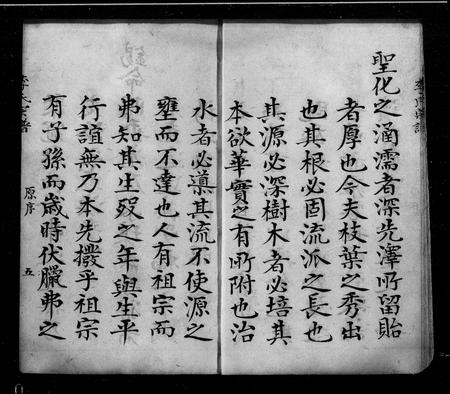 聖化之涵濡者深先澤所留貽
者厚也今夫枝葉之秀出
也其根必固流派之長也
其源必深樹木者必培其
本欲華實之有所附也治
水者必導其流不使源之
壅而不達也人有祖宗而
弗知其生歿之年與生平
行誼無乃本先撥乎祖宗
有子孫而歲時伏臘弗之
原序
五